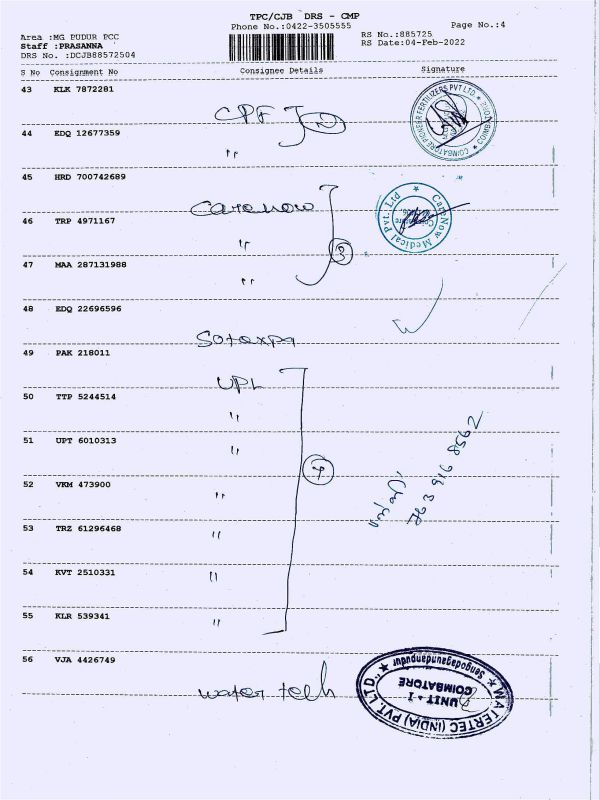 TPC/CJB DRS - CMP
Phone No.:0422-3505555
Page No.:4
Area :MG PUDUR PCC
Staff :PRASANNA
DRS No. :DCJB88572504
RS No.:885725
RS Date:04-Feb-2022
S No Consignment No Consignee Details Signature
43 KLK 7872281
CPF 2
COIMBATORE PIONEER FERTILIZERS PVT LTD * COIMBATORE
44 EDQ 12677359
"
45 HRD 700742689
Carenow
CareNow Medical Pvt. Ltd
46 TRP 4971167
"
3
47 MAA 287131988
"
48 EDQ 22696596
Sotexpa
49 PAK 218011
UPL
50 TTP 5244514
"
51 UPT 6010313
"
7
763 916 8562
52 VKM 473900
"
53 TRZ 61296468
"
54 KVT 2510331
"
55 KLR 539341
"
56 VJA 4426749
water tech
* WATERTEC (INDIA) PVT. LTD., *
UNIT - I
COIMBATORE